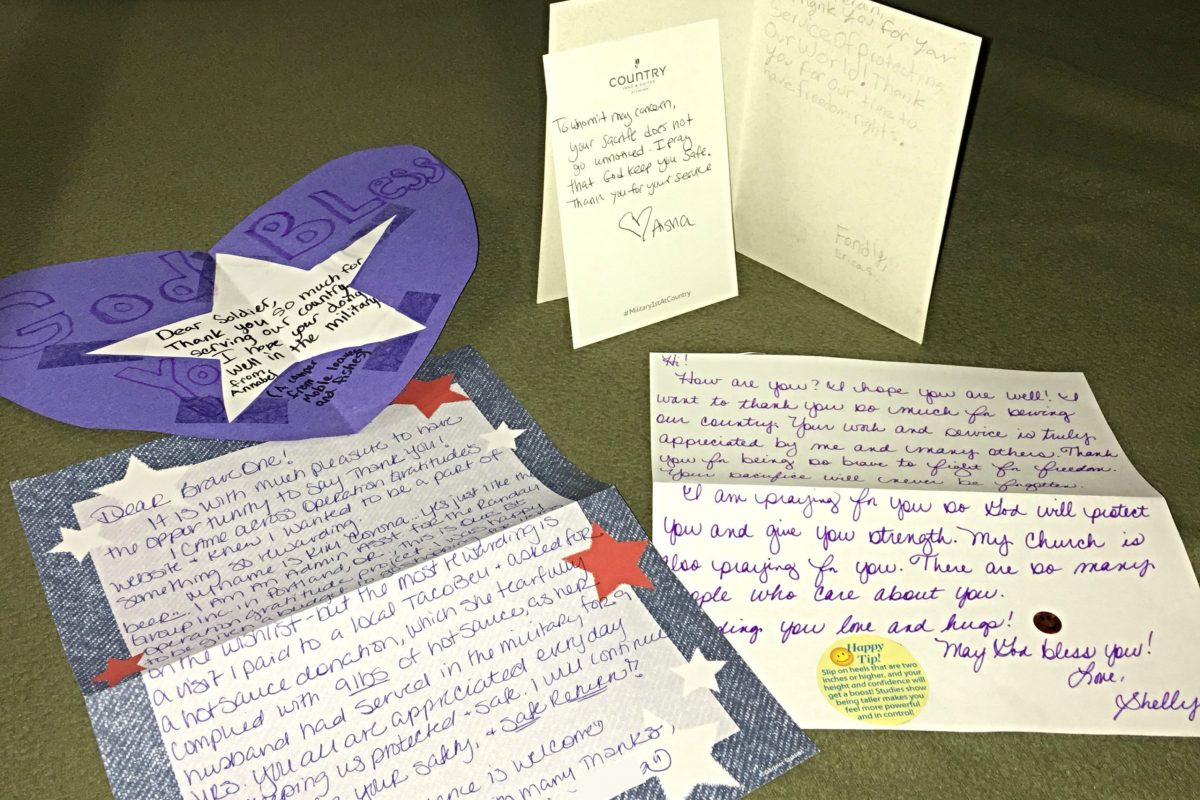 God Bless
You
Dear Soldier,
Thank you so much for
serving our country
I hope your doing
well in the military
from
Annabel
(A whisper
from
Mobile loaves
and fishes)
COUNTRY
INN & SUITES
To whom it may concern,
your sacrifie does not
go unnoticed. I pray
that God keep you safe.
Thank you for your service
Aisha
#Military1stAtCountry
Thank you for your
Service Of protecting
Our World! Thank
you for our time to
have freedom right
Fondly,
Dear Brave One!
It is with much pleasure to have
the opportunity to say Thank you!
I came across Operation Gratitude's
website & knew I wanted to be a part of
something so rewarding.
My name is Kim Corona, yes just like the
beer... I am an Admin Asst. for the Randay
Group Inc. in Portland, OR. This is our 1st
operation gratitude project. I was happy
to be given a budget
on the wishlist - but the most rewarding is
a visit I paid to a local Taco Bell & asked for
a hot sauce donation, which she tearfully
complied with 9 lbs of hot sauce, as her
husband had served in the military for 9
yrs. You all are appreciated everyday
keeping us protected & safe. I will continue
your safety, & Safe Return!!
is welcome
many thanks,
Hi!
How are you? I hope you are well! I
want to thank you so much for serving
our country. Your work and service is truly
appreciated by me and many others. Thank
you for being so brave to fight for freedom.
Your sacrifice will never be forgotten.
I am praying for you so God will protect
you and give you strength. My church is
also praying for you. There are so many
people who care about you.
Sending you love and hugs!
May God bless you!
Love,
Shelly
Happy
Tip!
Slip on heels that are two
inches or higher, and your
height and confidence will
get a boost! Studies show
being taller makes you
feel more powerful
and in control!